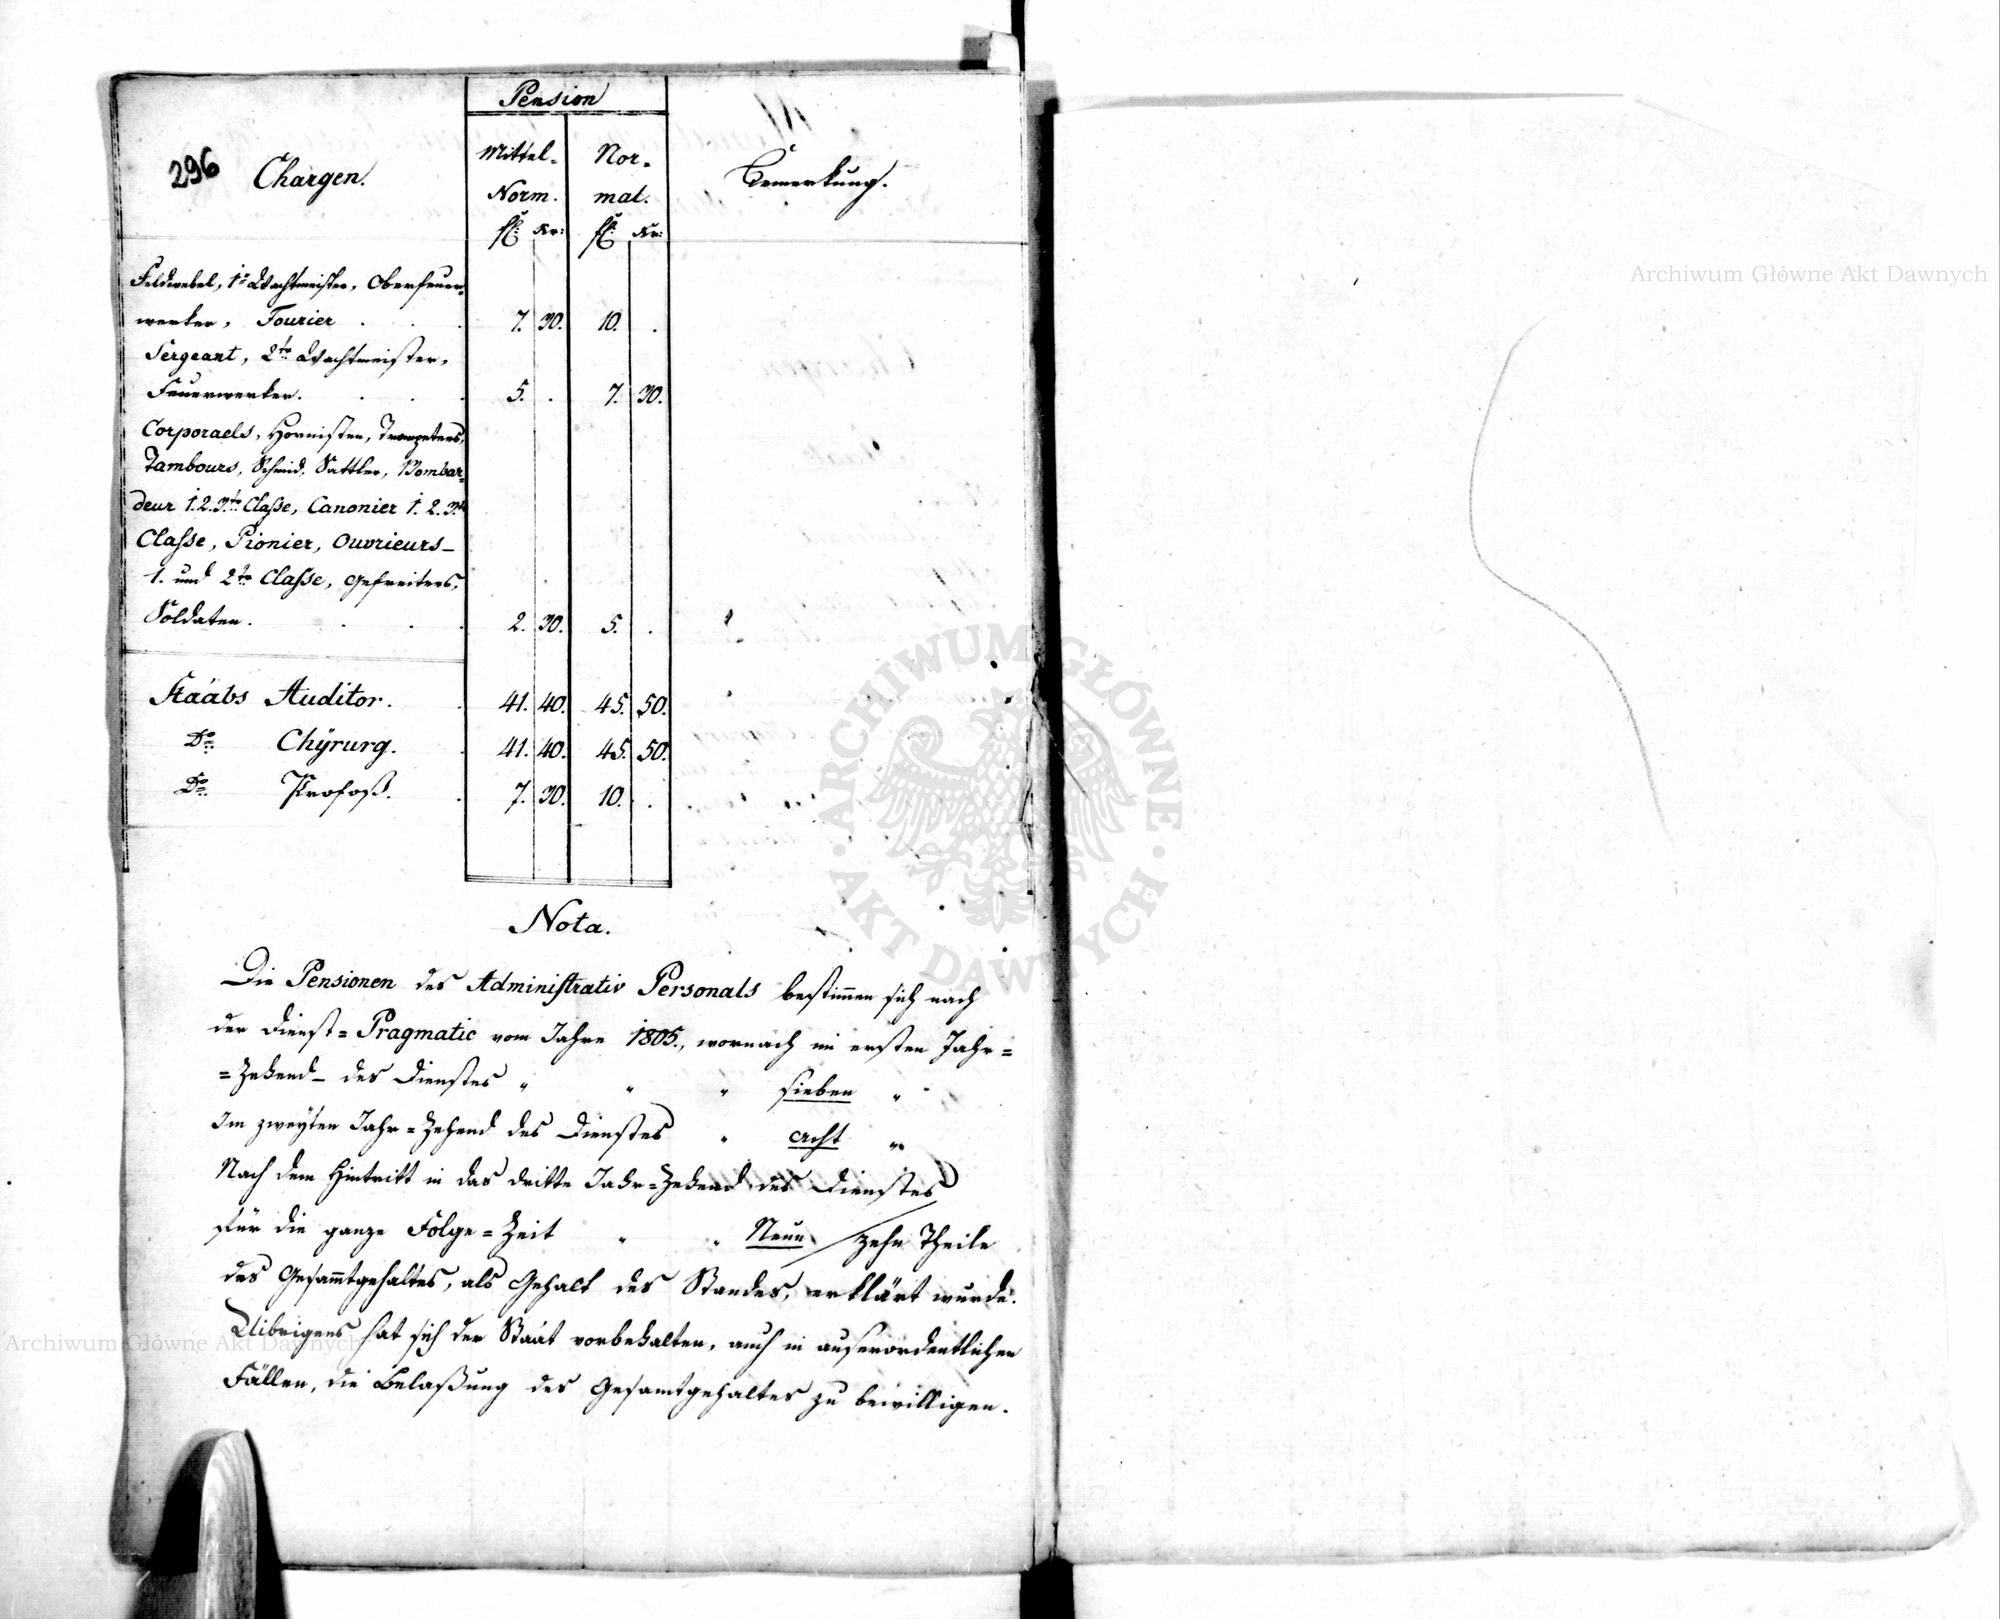 Pension
296 Chargen.
Mittel- Nor-
Norm. mal.
Bemerkung.
fl: Kr: fl: Kr:
Feldwebel, 1r Wachtmeister, Oberfeuer-
werker, Fourier . . . 7. 30. 10. .
Sergeant, 2tr Wachtmeister,
Feuerwerker. . . . 5. . 7. 30.
Corporaels, Hornisten, Trompeters,
Tambours, Schmid, Sattler, Bombar-
deur 1. 2. 3tr Classe, Canonier 1. 2. 3tr
Classe, Pionier, Ouvrieurs-
1. und 2tr Classe, Gefreiters,
Soldaten. . . . 2. 30. 5. .
Staabs Auditor. . 41. 40. 45. 50.
Do Chÿrurg. . 41. 40. 45. 50.
Do Profoß. . 7. 30. 10. .
Nota.
Die Pensionen des Administrativ Personals bestimmen sich nach
der Dienst=Pragmatic vom Jahre 1805., wornach im ersten Jahr=
=Zehend- des Dienstes " " " sieben "
Im zweyten Jahr=Zehend des Dienstes " acht "
Nach dem Hintritt in das dritte Jahr=Zehend des Dienstes
für die ganze Folge=Zeit " " Neun / zehn Theile
des Gesammtgehaltes, als Gehalt des Standes, erklärt wurde.
Uibrigens hat sich der Staat vorbehalten, auch in auserordentlichen
Fällen, die Belaßung des Gesamtgehaltes zu bewilligen.
Archiwum Główne Akt Dawnych
ARCHIWUM GŁÓWNE · AKT DAWNYCH ·
Archiwum Główne Akt Dawnych